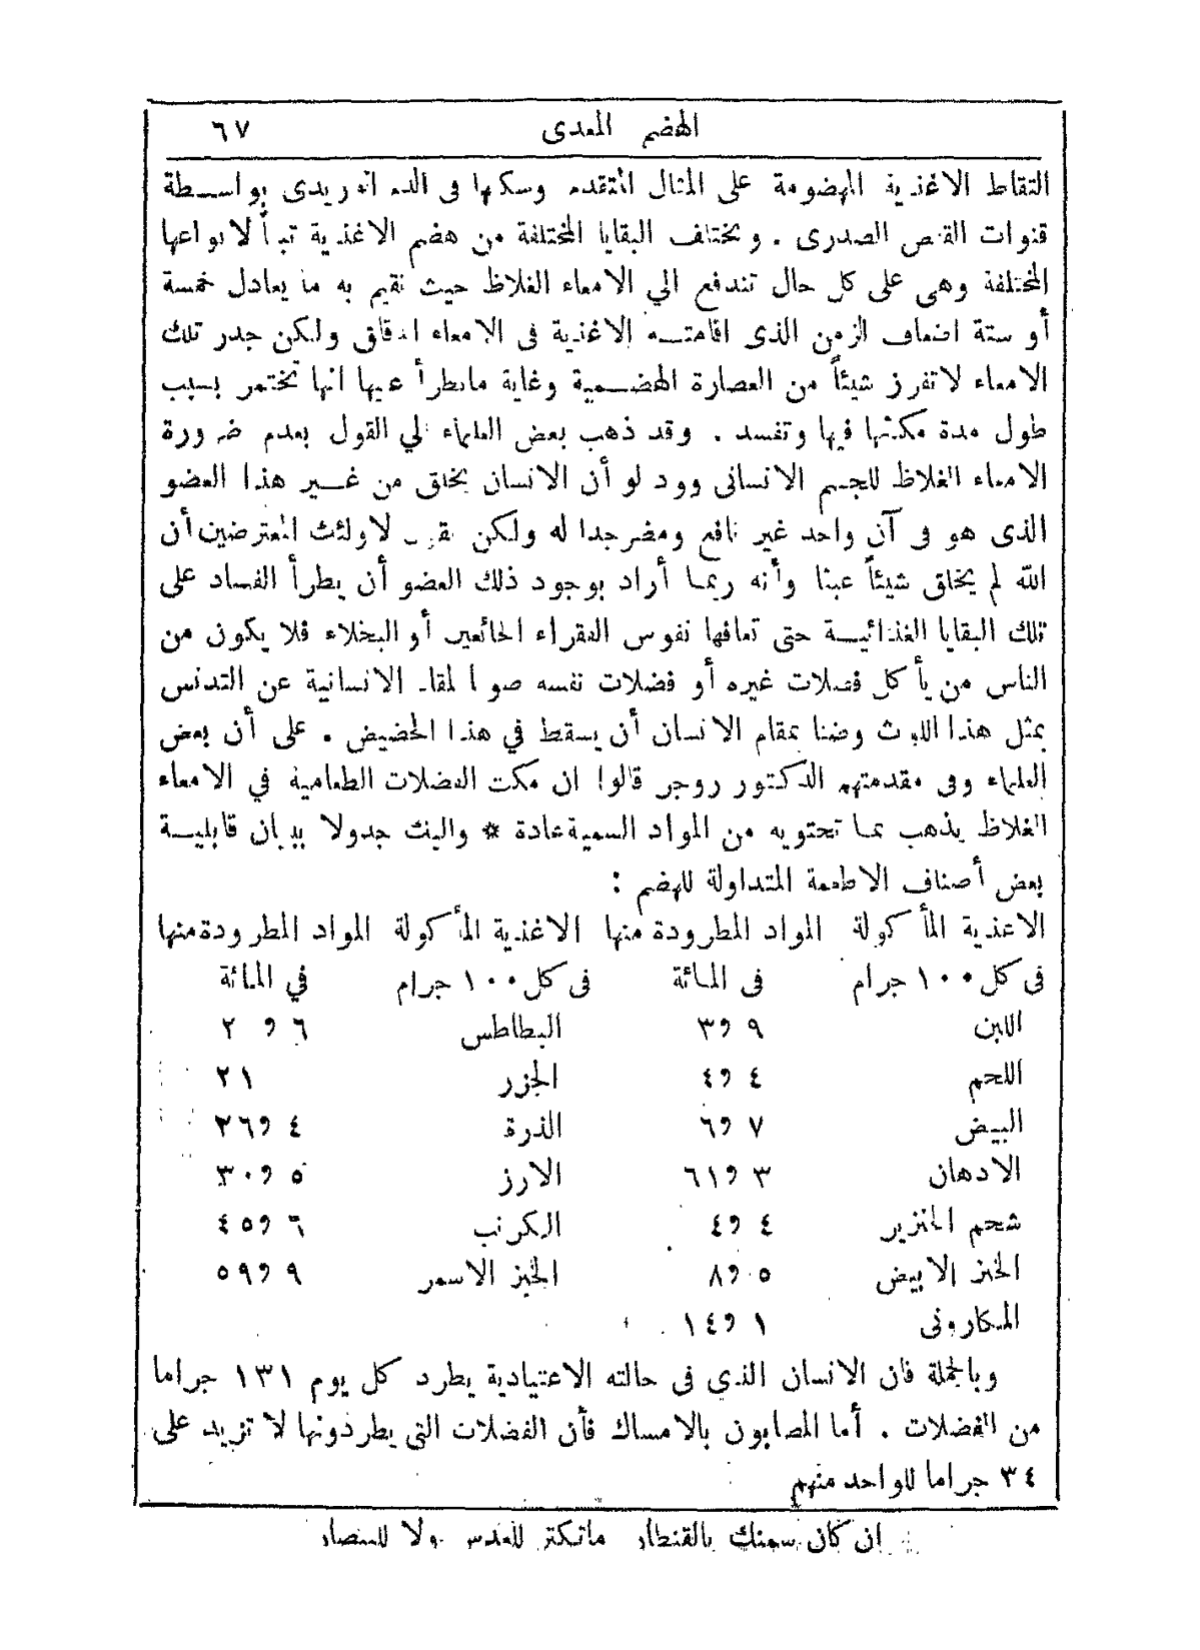 الهضم المعدى ٦٧
التقاط الاغذية المهضومة على المثال المتقدم وسكبها فى الدم الوريدى بواسطة
قنوات القفص الصدرى . وتختلف البقايا المختلفة من هضم الاغذية تبعاً لانواعها
المختلفة وهى على كل حال تندفع الي الامعاء الغلاظ حيث تقيم به ما يعادل خمسة
أو ستة اضعاف الزمن الذى اقامته الاغذية فى الامعاء الدقاق ولكن جدر تلك
الامعاء لاتفرز شيئاً من العصارة الهضمية وغاية مايطرأ عليها انها تختمر بسبب
طول مدة مكثها فيها وتفسد . وقد ذهب بعض العلماء الي القول بعدم ضرورة
الامعاء الغلاظ للجسم الانسانى وود لو أن الانسان يخلق من غير هذا العضو
الذى هو فى آن واحد غير نافع ومضر جدا له ولكن نقول لاولئك المعترضين أن
الله لم يخلق شيئاً عبثا وأنه ربما أراد بوجود ذلك العضو أن يطرأ الفساد على
تلك البقايا الغذائية حتى تعافها نفوس الفقراء الجائعين أو البخلاء فلا يكون من
الناس من يأكل فضلات غيره أو فضلات نفسه صونا لمقام الانسانية عن التدنس
بمثل هذا اللوث وضنا بمقام الانسان أن يسقط في هذا الحضيض . على أن بعض
العلماء وفى مقدمتهم الدكتور روجر قالوا ان مكث الفضلات الطعامية في الامعاء
الغلاظ يذهب بما تحتويه من المواد السمية عادة * واليك جدولا ببيان قابلية
بعض أصناف الاطعمة المتداولة للهضم :
الاغذية المأكولة المواد المطرودة منها الاغذية المأكولة المواد المطرودة منها
فى كل ١٠٠ جرام فى المائة فى كل ١٠٠ جرام في المائة
اللبن ٩ و٣ البطاطس ٦ و ٢
اللحم ٤ و٤ الجزر ٢١
البيض ٧ و٦ الذرة ٤ و٢٦
الادهان ٣ و٦١ الارز ٥ و٣٠
شحم الخنزير ٤ و٤ الكرنب ٦ و٤٥
الخبز الابيض ٥ و٨ الخبز الاسمر ٩ و٥٩
المكارونى ١ و١٤
وبالجملة فان الانسان الذي فى حالته الاعتيادية يطرد كل يوم ١٣١ جراما
من الفضلات . أما المصابون بالامساك فأن الفضلات التى يطردونها لا تزيد على
٣٤ جراما للواحد منهم
ان كان سمنك بالقنطار ماتكتر للعدس ولا للبصار